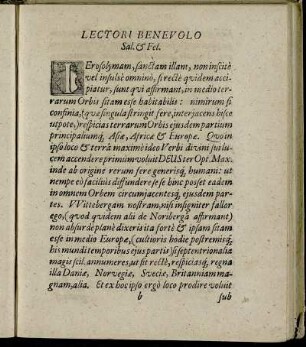 LECTORI BENEVOLO
Sal. & Fel.
IErosolymam, sanctam illam, non inscitè
vel insulsè omninò, si rectè quidem acci-
piatur, sunt qui affirmant, in medio ter-
rarum Orbis sitam esse habitabilis: nimirum si
confinia, (quæ singula stringit fere, interjacens hisce
utpote,) respicias terrarum Orbis ejusdem partium
principaliumq́, Asiæ, Africæ & Europæ. Quo in
ipso loco & terrâ maximè ideo Verbi divini sua lu-
cem accendere primùm voluit DEUS ter Opt. Max.
inde ab origine rerum fere generisq́, humani: ut
nempe eò faciliùs diffundere sese hinc posset eadem
in omnium Orbem circumjacentesq́, ejusdem par-
tes. Wittebergam nostram, nisi insigniter fallor
ego, (quod quidem alii de Noribergâ affirmant)
non absurdè planè dixeris ita fortè & ipsam sitam
esse in medio Europæ, (cultioris hodie postremisq́,
his mundi temporibus ejus partis) si septentrionalia
magis scil. annumeres, ut fit rectè, respiciasq́, regna
illa Daniæ, Norvegiæ, Sveciæ, Britanniam ma-
gnam, alia. Et ex hoc ipso ergò loco prodire voluit
b sub